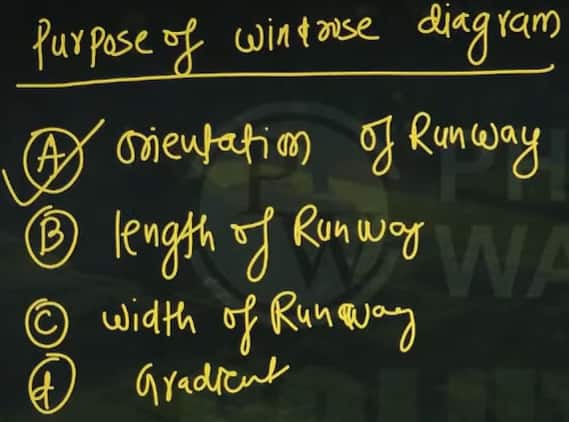 Purpose of windrose diagram
A orientation of Runway
B length of Runway
C width of Runway
d Gradient
PH
WA